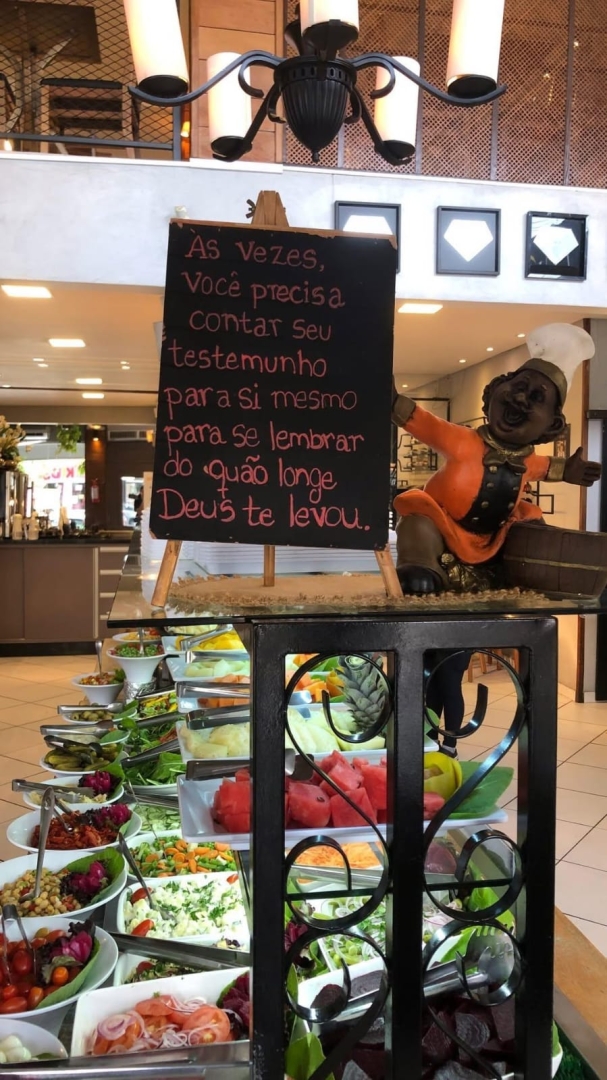 Às vezes,
você precisa
contar seu
testemunho
para si mesmo
para se lembrar
do quão longe
Deus te levou.